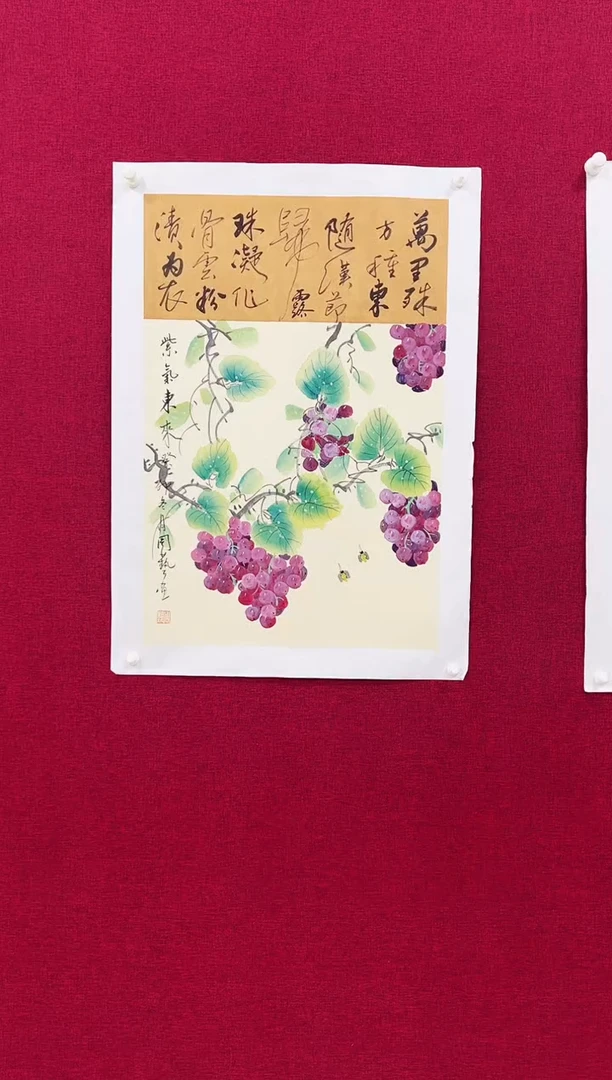 萬里殊
方種東
隨漢節
歸露
珠凝作
骨雲粉
漬為衣
紫氣東來癸卯冬月周藝